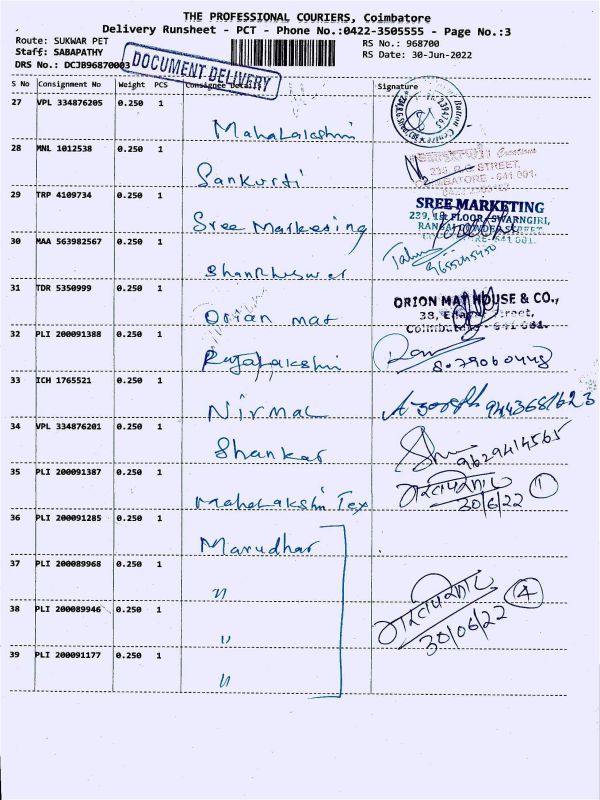 THE PROFESSIONAL COURIERS, Coimbatore
Delivery Runsheet - PCT - Phone No.:0422-3505555 - Page No.:3
Route: SUKWAR PET
RS No.: 968700
Staff: SABAPATHY
RS Date: 30-Jun-2022
DRS No.: DCJB96870003
DOCUMENT DELIVERY
S No Consignment No Weight PCS Consignee Details Signature
27 VPL 334876205 0.250 1 Mahalakshmi
28 MNL 1012538 0.250 1 Sankurti
STREET,
COIMBATORE - 641 001.
29 TRP 4109734 0.250 1 Sree Marketing
SREE MARKETING
30 MAA 563982567 0.250 1
31 TDR 5350999 0.250 1 Orian mat
ORION MAT HOUSE & CO.,
38, Street,
Coimbatore - 641 001.
32 PLI 200091388 0.250 1 Rajalakshmi
33 ICH 1765521 0.250 1 Nirmal
A Joseph 9443681623
34 VPL 334876201 0.250 1 Shankar
9629414565
35 PLI 200091387 0.250 1 Mahalakshmi Tex
1
30/6/22
36 PLI 200091285 0.250 1 Marudhar
37 PLI 200089968 0.250 1 "
4
38 PLI 200089946 0.250 1 "
30/06/22
39 PLI 200091177 0.250 1 "